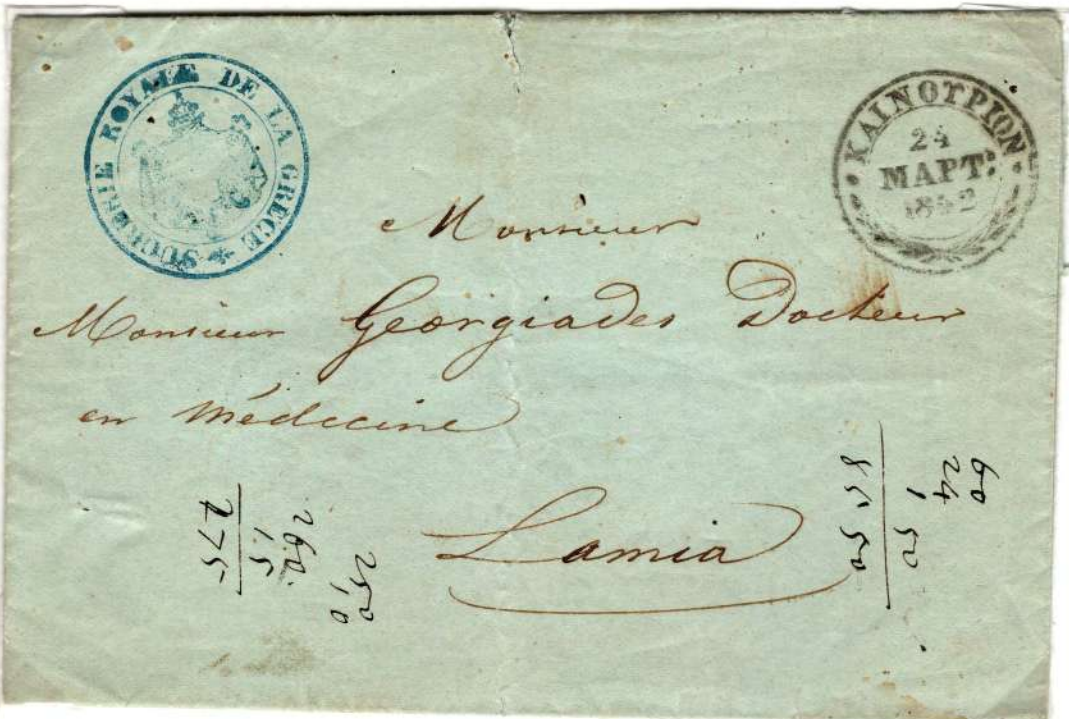 SUCRERIE ROYALE DE LA GRECE
ΚΑΙΝΟΥΡΙΟΝ
24
ΜΑΡΤ:
1842
Monsieur
Monsieur Georgiades Docteur
en Médecine
Lamia
250
10
260
15
275
60
24
1 50
85 50